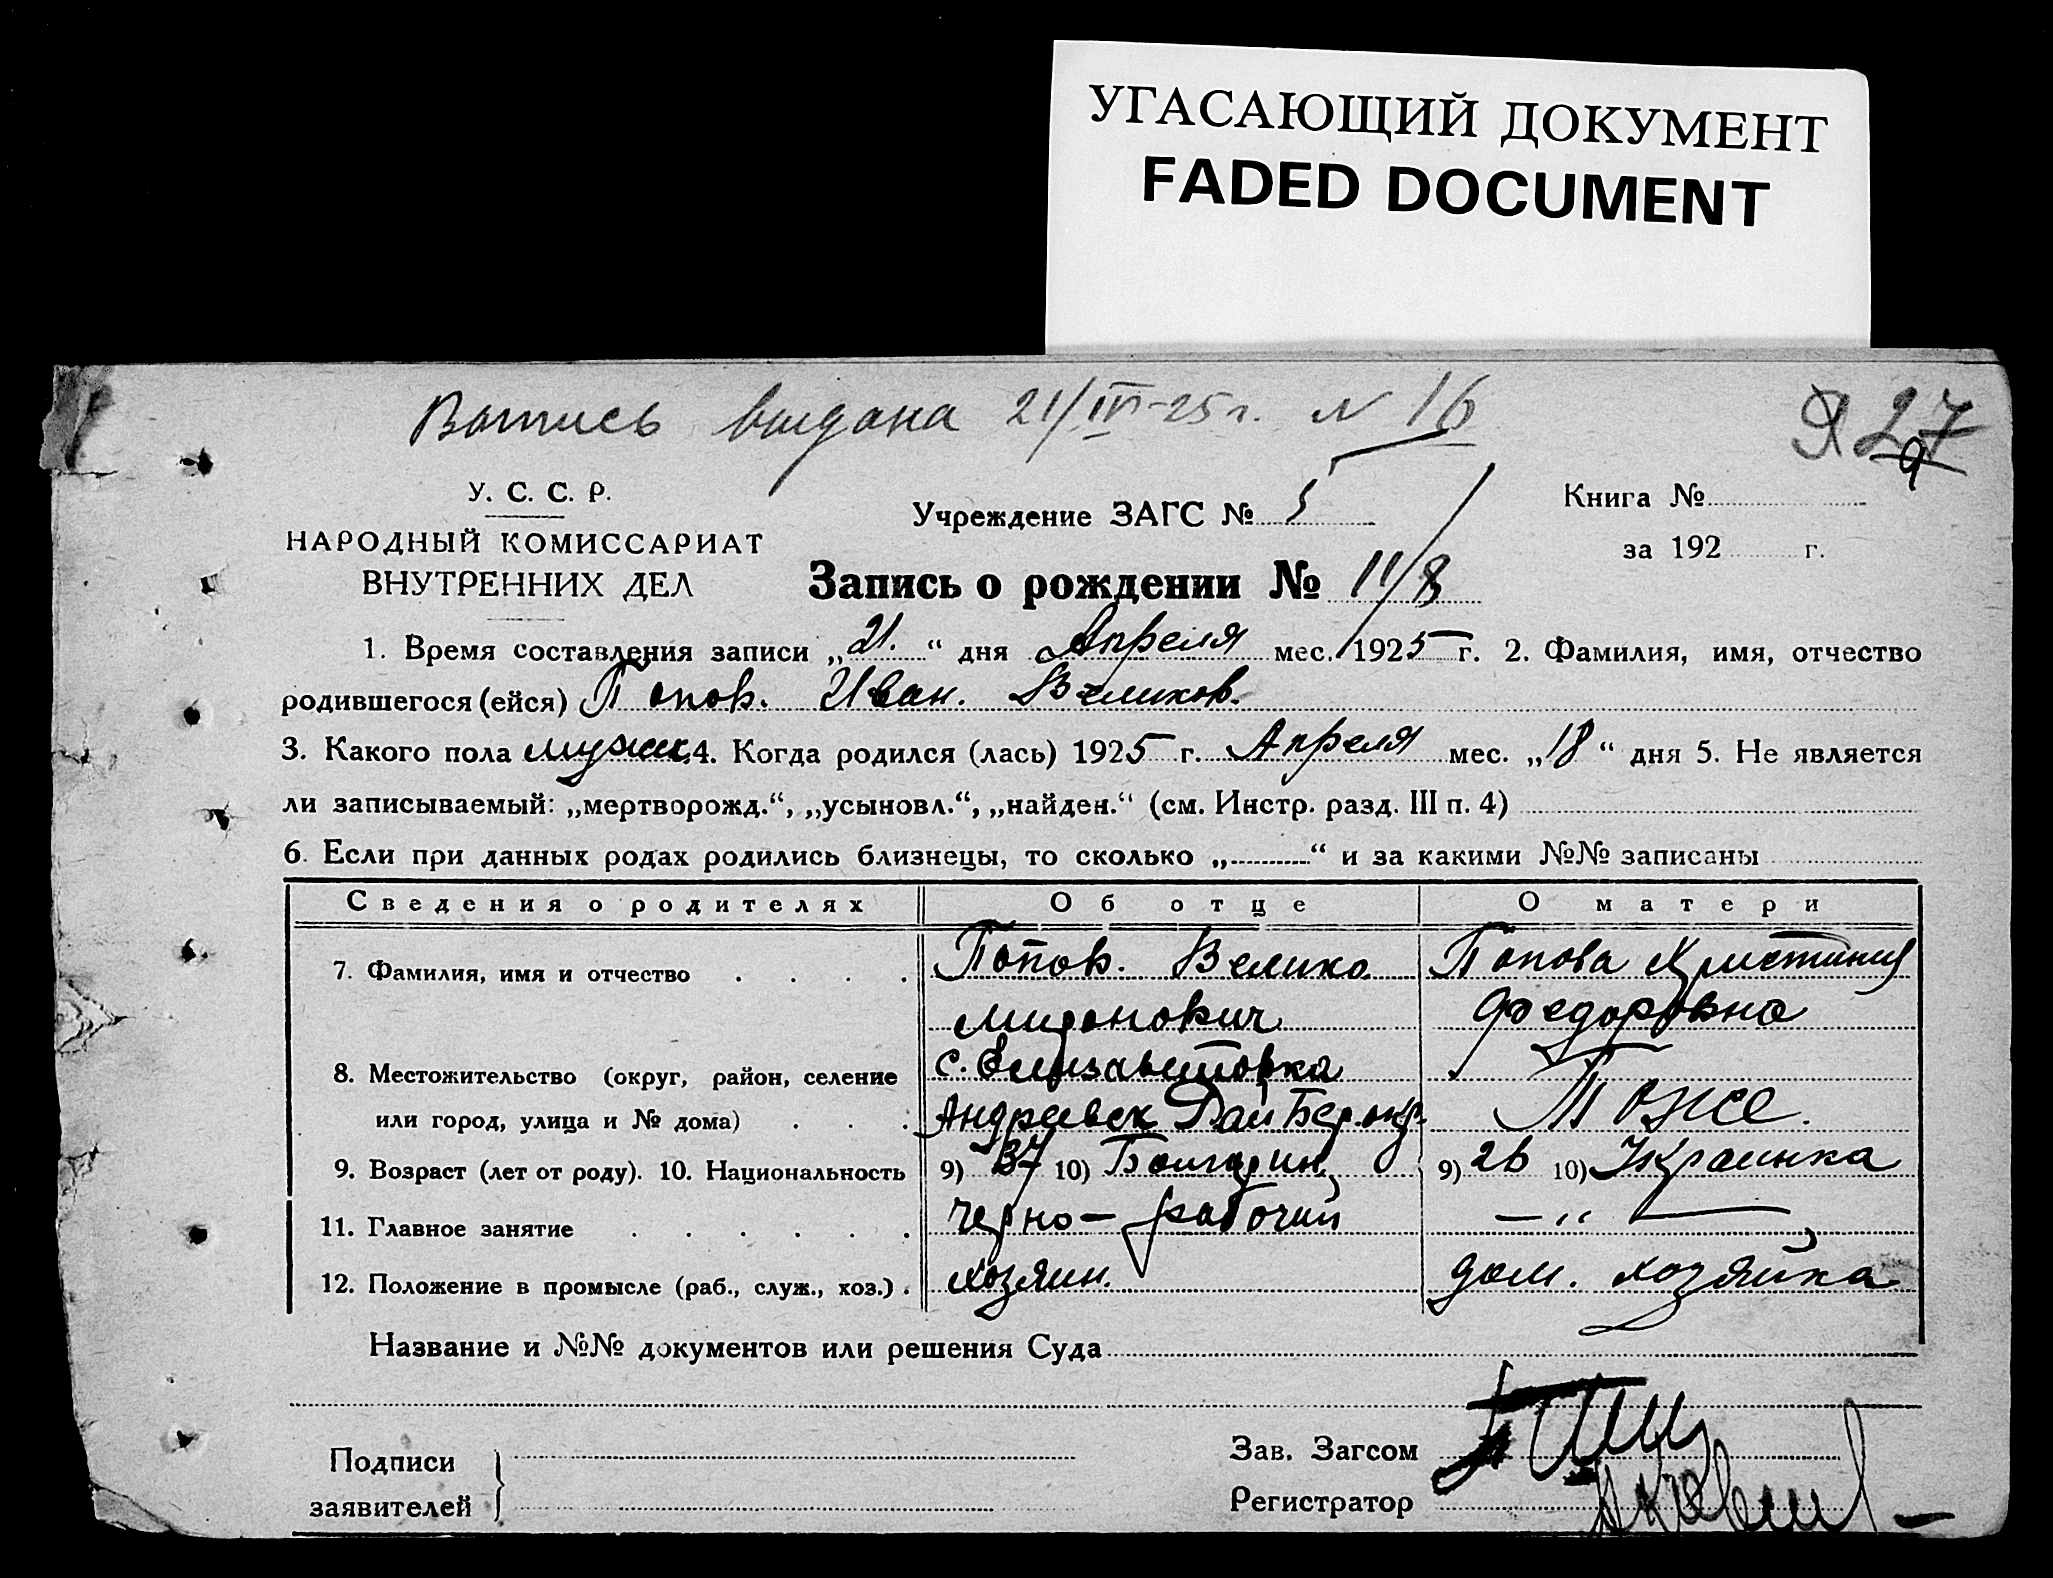 УГАСАЮЩИЙ ДОКУМЕНТ
FADED DOCUMENT
выдана 21/IV-25 г. N 16
27
У. С. С. Р.
НАРОДНЫЙ КОМИССАРИАТ
ВНУТРЕННИХ ДЕЛ
Учреждение ЗАГС № 5
Книга №
за 192 г.
Запись о рождении № 11/8
1. Время составления записи „21.“ дня Апреля мес. 1925 г. 2. Фамилия, имя, отчество
родившегося (ейся) Попов. Иван. Великов.
3. Какого пола мужск 4. Когда родился (лась) 1925 г. Апреля мес. „18“ дня 5. Не является
ли записываемый: „мертворожд.“, „усыновл.“, „найден.“ (см. Инстр. разд. III п. 4)
6. Если при данных родах родились близнецы, то сколько „ “ и за какими №№ записаны
Сведения о родителях Об отце О матери
7. Фамилия, имя и отчество Попов. Велико Попова Христиния
Миронович Федоровна
8. Местожительство (округ, район, селение с. Елизаветовка
или город, улица и № дома) Андреевск Рай Бер. окр. Тоже.
9. Возраст (лет от роду). 10. Национальность 9) 37 10) Болгарин 9) 26 10) Украинка
11. Главное занятие Черно-рабочий —„—
12. Положение в промысле (раб., служ., хоз.) хозяин. дом. хозяйка
Название и №№ документов или решения Суда
Подписи
заявителей
Зав. Загсом
Регистратор